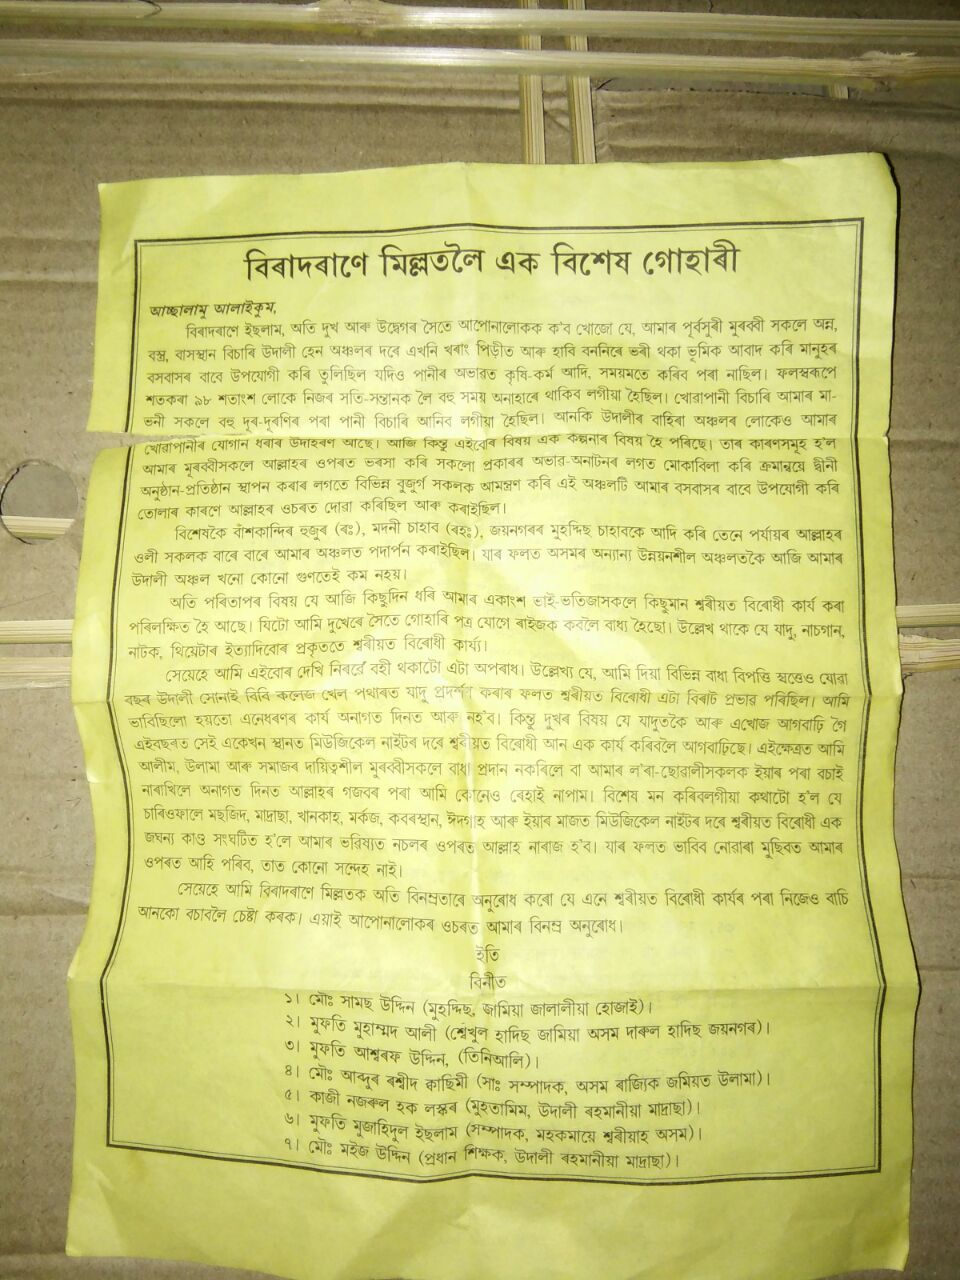 বিৰাদৰাণে মিল্লতলৈ এক বিশেষ গোহাৰী
আচ্ছালামু আলাইকুম,
বিৰাদৰাণে ইছলাম, অতি দুখ আৰু উদ্বেগৰ সৈতে আপোনালোকক ক'ব খোজো যে, আমাৰ পূৰ্বসুৰী মুৰব্বী সকলে অন্ন,
বস্ত্ৰ, বাসস্থান বিচাৰি উদালী হেন অঞ্চলৰ দৰে এখনি খৰাং পিড়ীত আৰু হাবি বননিৰে ভৰী থকা ভূমিক আবাদ কৰি মানুহৰ
বসবাসৰ বাবে উপযোগী কৰি তুলিছিল যদিও পানীৰ অভাৱত কৃষি-কৰ্ম আদি, সময়মতে কৰিব পৰা নাছিল। ফলস্বৰূপে
শতকৰা ৯৮ শতাংশ লোকে নিজৰ সতি-সন্তানক লৈ বহু সময় অনাহাৰে থাকিব লগীয়া হৈছিল। খোৱাপানী বিচাৰি আমাৰ মা-
ভনী সকলে বহু দূৰ-দূৰণিৰ পৰা পানী বিচাৰি আনিব লগীয়া হৈছিল। আনকি উদালীৰ বাহিৰা অঞ্চলৰ লোকেও আমাৰ
খোৱাপানীৰ যোগান ধৰাৰ উদাহৰণ আছে। আজি কিন্তু এইবোৰ বিষয় এক কল্পনাৰ বিষয় হৈ পৰিছে। তাৰ কাৰণসমূহ হ'ল
আমাৰ মূৰব্বীসকলে আল্লাহৰ ওপৰত ভৰসা কৰি সকলো প্ৰকাৰৰ অভাৱ-অনাটনৰ লগত মোকাবিলা কৰি ক্ৰমান্বয়ে দ্বীনী
অনুষ্ঠান-প্ৰতিষ্ঠান স্থাপন কৰাৰ লগতে বিভিন্ন বুজুৰ্গ সকলক আমন্ত্ৰণ কৰি এই অঞ্চলটি আমাৰ বসবাসৰ বাবে উপযোগী কৰি
তোলাৰ কাৰণে আল্লাহৰ ওচৰত দোৱা কৰিছিল আৰু কৰাইছিল।
বিশেষকৈ বাঁশকান্দিৰ হুজুৰ (ৰঃ), মদনী চাহাব (ৰহঃ), জয়নগৰৰ মুহদ্দিছ চাহাবকে আদি কৰি তেনে পৰ্যায়ৰ আল্লাহৰ
ওলী সকলক বাৰে বাৰে আমাৰ অঞ্চলত পদাৰ্পন কৰাইছিল। যাৰ ফলত অসমৰ অন্যান্য উন্নয়নশীল অঞ্চলতকৈ আজি আমাৰ
উদালী অঞ্চল খনো কোনো গুণতেই কম নহয়।
অতি পৰিতাপৰ বিষয় যে আজি কিছুদিন ধৰি আমাৰ একাংশ ভাই-ভতিজাসকলে কিছুমান শ্বৰীয়ত বিৰোধী কাৰ্য কৰা
পৰিলক্ষিত হৈ আছে। যিটো আমি দুখেৰে সৈতে গোহাৰি পত্ৰ যোগে ৰাইজক কবলৈ বাধ্য হৈছো। উল্লেখ থাকে যে যাদু, নাচগান,
নাটক, থিয়েটাৰ ইত্যাদিবোৰ প্ৰকৃততে শ্বৰীয়ত বিৰোধী কাৰ্য্য।
সেয়েহে আমি এইবোৰ দেখি নিৰৱে বহী থকাটো এটা অপৰাধ। উল্লেখ্য যে, আমি দিয়া বিভিন্ন বাধা বিপত্তি স্বত্তেও যোৱা
বছৰ উদালী সোনাই বিবি কলেজ খেল পথাৰত যাদু প্ৰদৰ্শন কৰাৰ ফলত শ্বৰীয়ত বিৰোধী এটা বিৰাট প্ৰভাৱ পৰিছিল। আমি
ভাবিছিলো হয়তো এনেধৰণৰ কাৰ্য অনাগত দিনত আৰু নহ'ব। কিন্তু দুখৰ বিষয় যে যাদুতকৈ আৰু এখোজ আগবাঢ়ি গৈ
এইবছৰত সেই একেখন স্থানত মিউজিকেল নাইটৰ দৰে শ্বৰীয়ত বিৰোধী আন এক কাৰ্য কৰিবলৈ আগবাঢ়িছে। এইক্ষেত্ৰত আমি
আলীম, উলামা আৰু সমাজৰ দায়িত্বশীল মুৰব্বীসকলে বাধা প্ৰদান নকৰিলে বা আমাৰ ল'ৰা-ছোৱালীসকলক ইয়াৰ পৰা বচাই
নাৰাখিলে অনাগত দিনত আল্লাহৰ গজবৰ পৰা আমি কোনেও ৰেহাই নাপাম। বিশেষ মন কৰিবলগীয়া কথাটো হ'ল যে
চাৰিওফালে মছজিদ, মাদ্ৰাছা, খানকাহ, মৰ্কজ, কবৰস্থান, ঈদগাহ আৰু ইয়াৰ মাজত মিউজিকেল নাইটৰ দৰে শ্বৰীয়ত বিৰোধী এক
জঘন্য কাণ্ড সংঘটিত হ'লে আমাৰ ভৱিষ্যত নচলৰ ওপৰত আল্লাহ নাৰাজ হ'ব। যাৰ ফলত ভাবিব নোৱাৰা মুছিবত আমাৰ
ওপৰত আহি পৰিব, তাত কোনো সন্দেহ নাই।
সেয়েহে আমি বিৰাদৰাণে মিল্লতক অতি বিনম্ৰতাৰে অনুৰোধ কৰো যে এনে শ্বৰীয়ত বিৰোধী কাৰ্যৰ পৰা নিজেও বাচি
আনকো বচাবলৈ চেষ্টা কৰক। এয়াই আপোনালোকৰ ওচৰত আমাৰ বিনম্ৰ অনুৰোধ।
ইতি
বিনীত
১। মৌঃ সামছ উদ্দিন (মুহদ্দিছ, জামিয়া জালালীয়া হোজাই)।
২। মুফতি মুহাম্মদ আলী (শ্বেখুল হাদিছ জামিয়া অসম দাৰুল হাদিছ জয়নগৰ)।
৩। মুফতি আশ্বৰফ উদ্দিন, (তিনিআলি)।
৪। মৌঃ আব্দুৰ ৰশ্বীদ ক্বাছিমী (সাঃ সম্পাদক, অসম ৰাজ্যিক জমিয়ত উলামা)।
৫। কাজী নজৰুল হক লস্কৰ (মুহতামিম, উদালী ৰহমানীয়া মাদ্ৰাছা)।
৬। মুফতি মুজাহিদুল ইছলাম (সম্পাদক, মহকমায়ে শ্বৰীয়াহ অসম)।
৭। মৌঃ মইজ উদ্দিন (প্ৰধান শিক্ষক, উদালী ৰহমানীয়া মাদ্ৰাছা)।